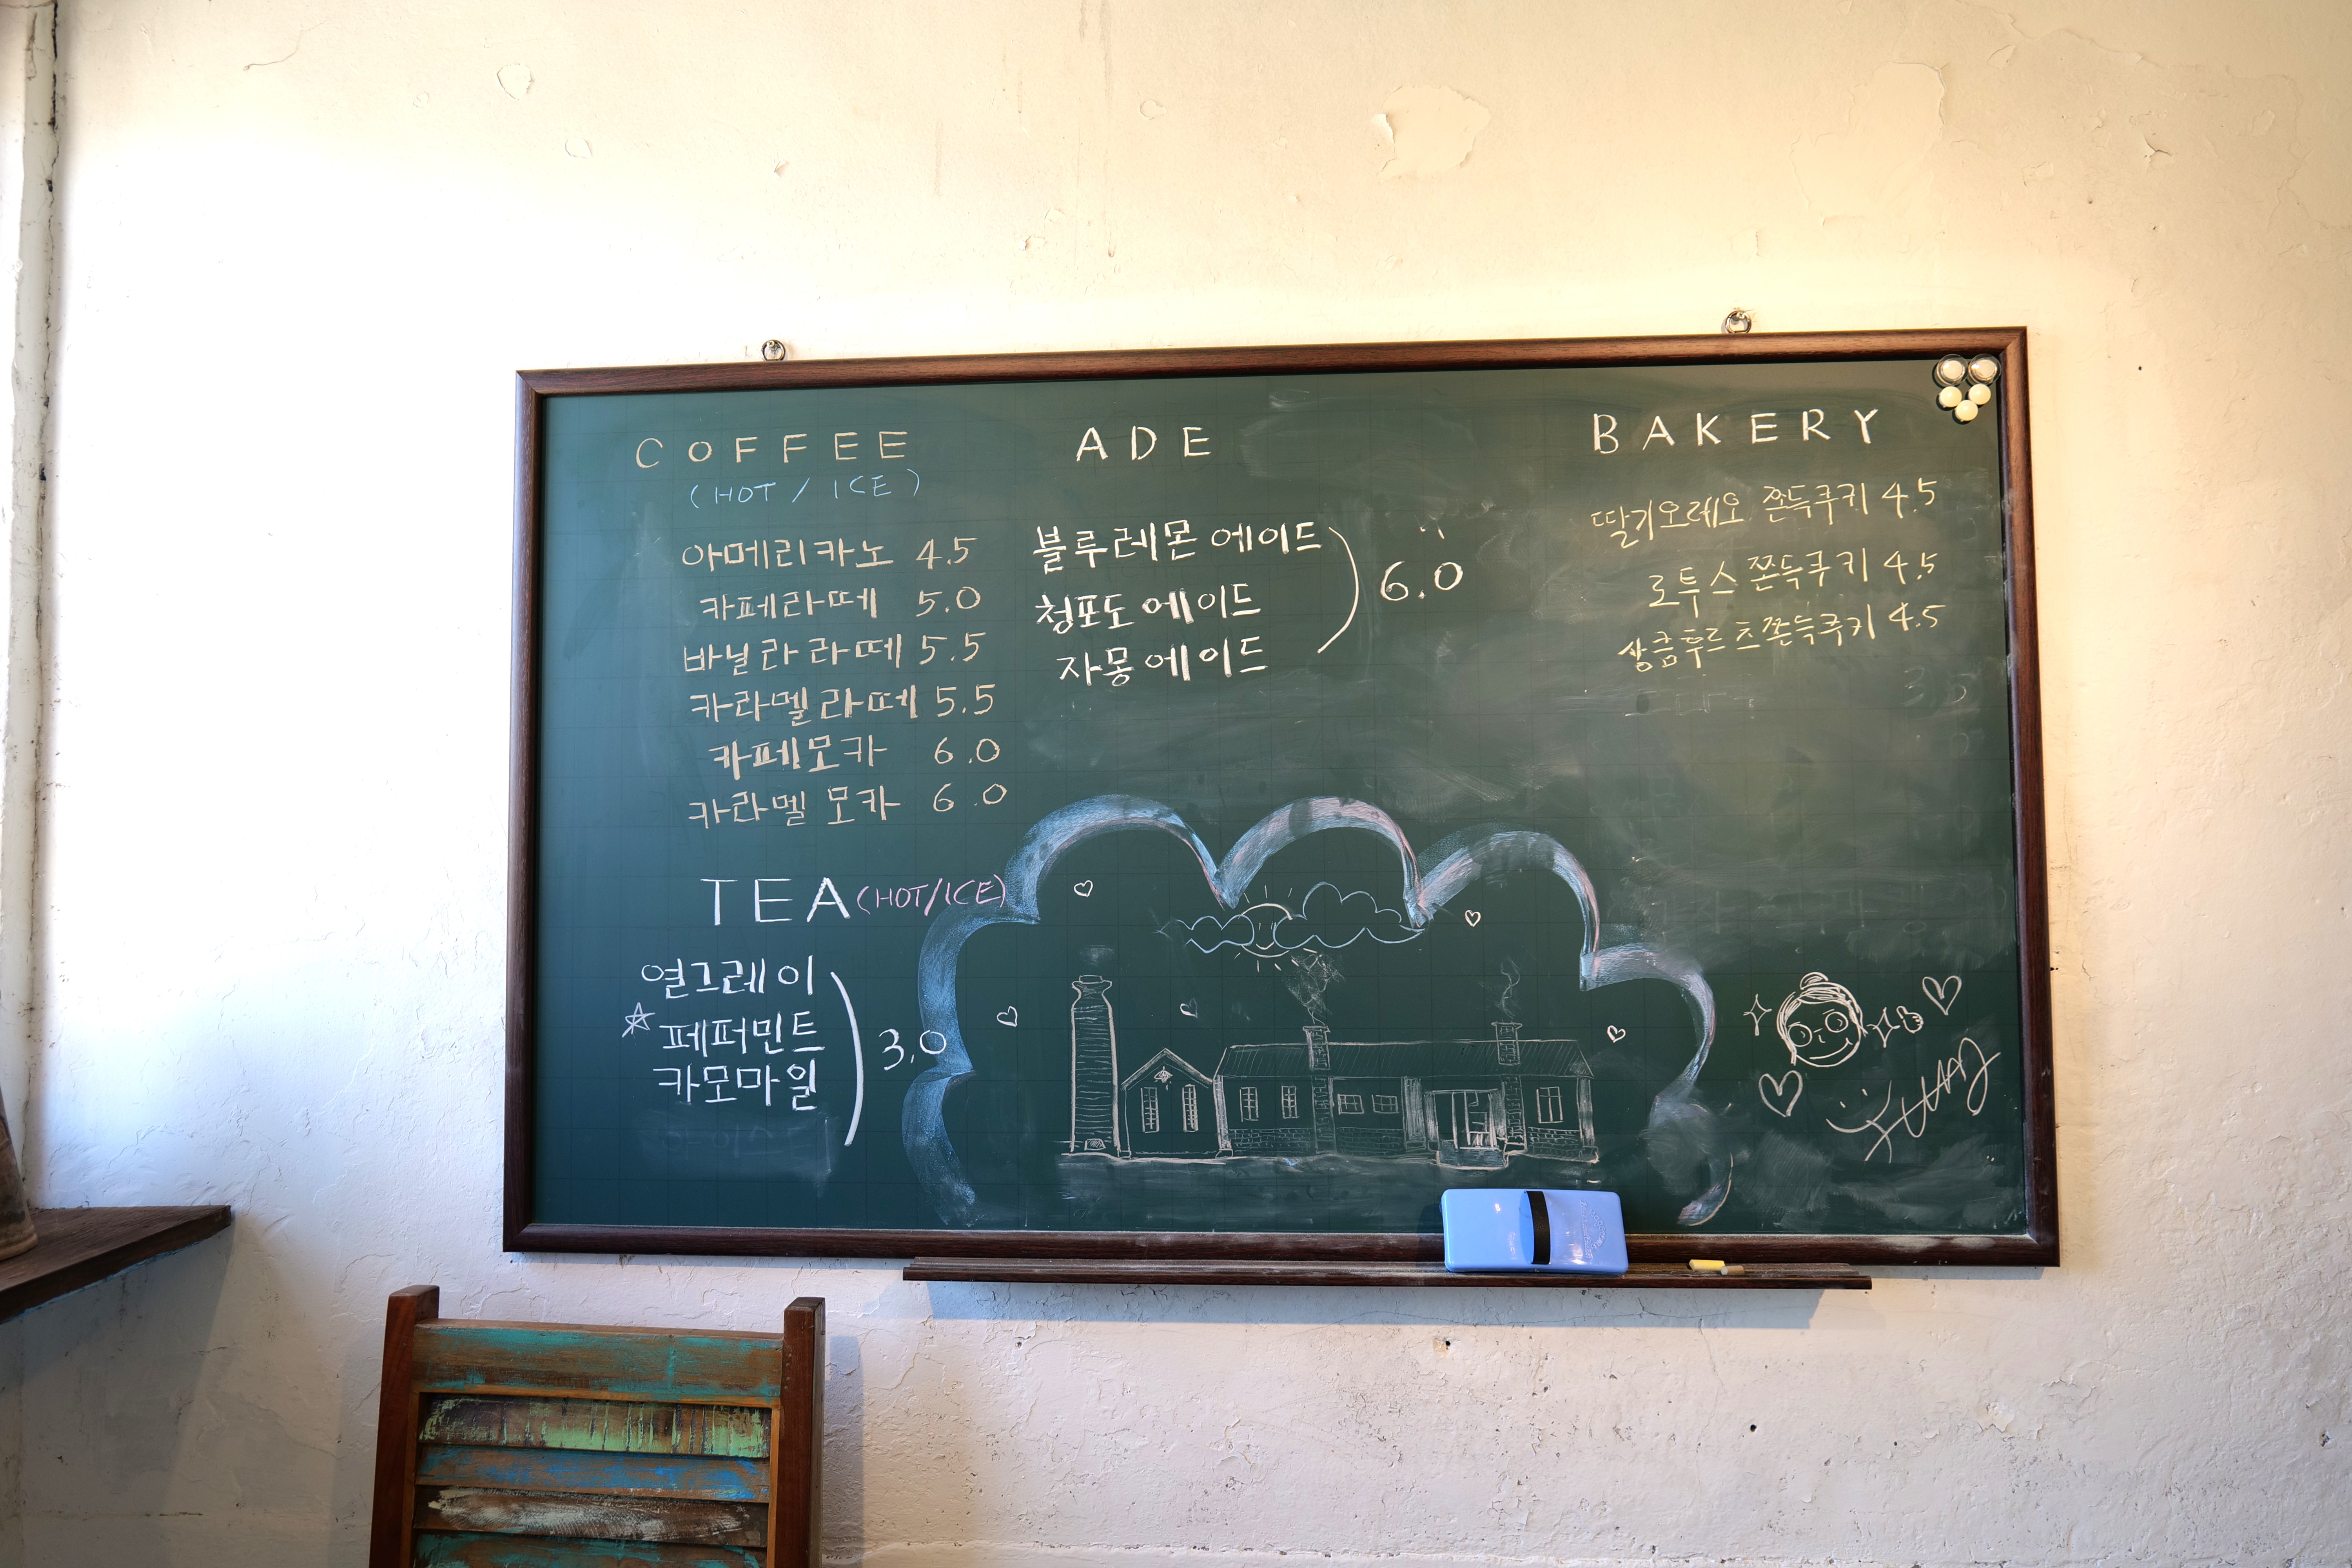 COFFEE
(HOT / ICE)
아메리카노 4.5
카페라떼 5.0
바닐라라떼 5.5
카라멜라떼 5.5
카페모카 6.0
카라멜 모카 6.0
TEA (HOT/ICE)
얼그레이
페퍼민트
카모마일
3.0
ADE
블루레몬에이드
청포도에이드
자몽에이드
6.0
BAKERY
딸기오레오 쫀득쿠키 4.5
로투스쫀득쿠키 4.5
상큼후르츠쫀득쿠키 4.5